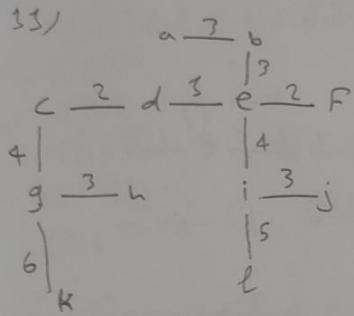 33)
a 3 b
3
c 2 d 3 e 2 F
4 4
g 3 h i 3 j
6 5
k l